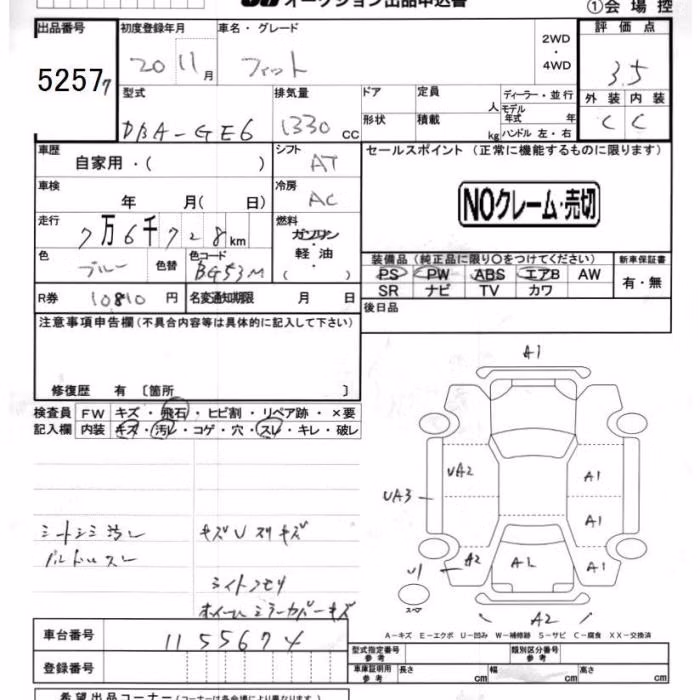 オークション出品申込書
①会場控
出品番号 初度登録年月 車名・グレード 2WD・4WD 評価点
52577 20 11月 フィット 3.5
型式 排気量 ドア 定員 人 ディーラー・並行 外装 内装
DBA-GE6 1330 cc 形状 積載 kg モデル年式 年 ハンドル 左・右 C C
車歴 自家用・( ) シフト AT セールスポイント (正常に機能するものに限ります)
車検 年 月( 日) 冷房 AC NOクレーム・売切
走行 7万6千728km 燃料 ガソリン・軽油・( )
色 ブルー 色替 色コード BG53M 装備品(純正品に限り〇をつけてください) 新車保証書
PS PW ABS エアB AW 有・無
SR ナビ TV カワ
R券 10810円 名変通知期限 月 日 後日品
注意事項申告欄(不具合内容等は具体的に記入して下さい)
修復歴 有 〔箇所 〕
検査員 FW キズ・飛石・ヒビ割・リペア跡・×要
記入欄 内装 キズ・汚レ・コゲ・穴・スレ・キレ・破レ
シートシミ汚レ キズUスリキズ
ハンドルスレ
ライトクモリ
ホイールミラーカバーキズ
A1
UA2 A1
UA3 A1
A2 A1
U1
スペア
A2
A-キズ E-エクボ U-凹み W-補修跡 S-サビ C-腐食 XX-交換済
車台番号 1155674
型式指定番号 参考 類別区分番号 参考
登録番号 車庫証明用 参考 長さ cm 幅 cm 高さ cm
希望出品コーナー